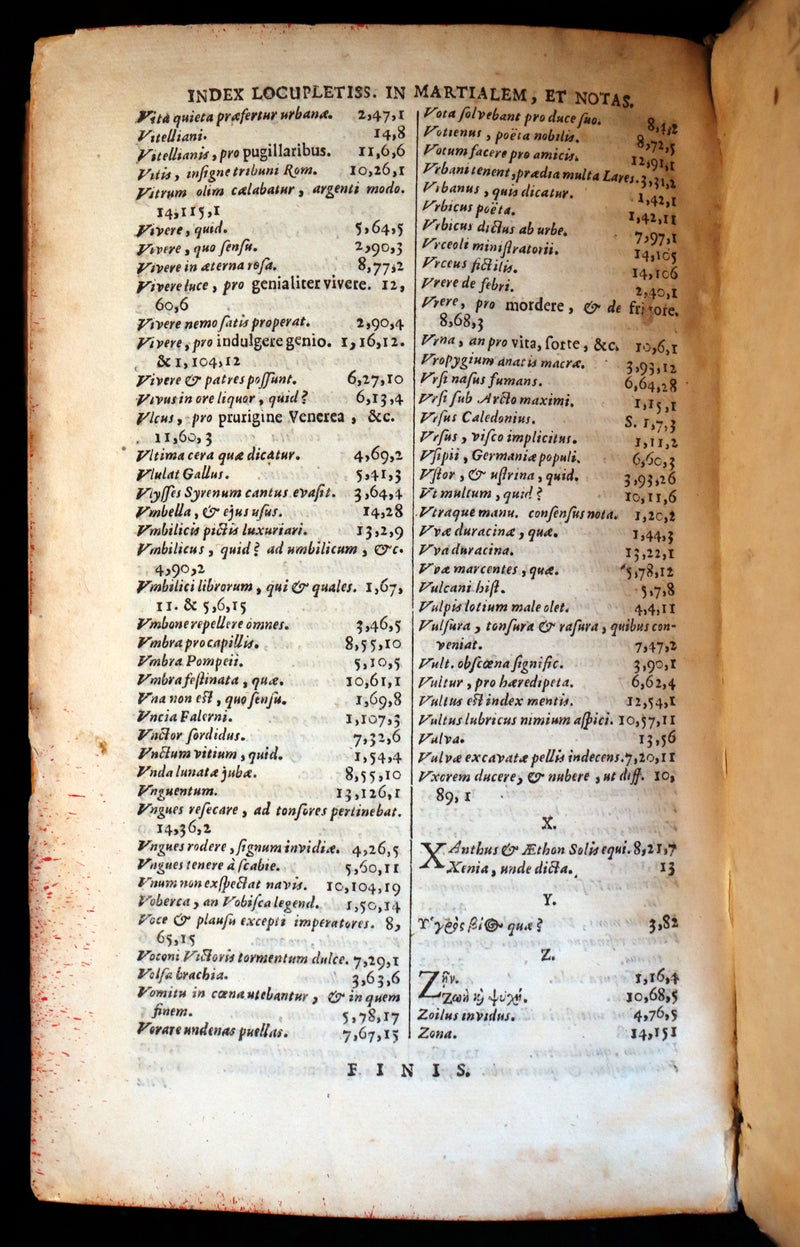 INDEX LOCUPLETISS. IN MARTIALEM, ET NOTAS.
Vita quieta præfertur urbanæ. 2,47,1
Vitelliani. 14,8
Vitellianis, pro pugillaribus. 11,6,6
Vitis, insigne tribuni Rom. 10,26,1
Vitrum olim cælabatur, argenti modo.
14,115,1
Vivere, quid. 5,64,5
Vivere, quo sensu. 2,90,3
Vivere in æterna rosa. 8,77,2
Vivere luce, pro genialiter vivere. 12,
60,6
Vivere nemo satis properat. 2,90,4
Vivere, pro indulgere genio. 1,16,12.
& 1,104,12
Vivere & patres possunt. 6,27,10
Vivus in ore liquor, quid? 6,13,4
Vlcus, pro prurigine Venerea, &c.
11,60,3
Vltima cera quæ dicatur. 4,69,2
Vlulat Gallus. 5,41,3
Vlysses Syrenum cantus evasit. 3,64,4
Vmbella, & ejus usus. 14,28
Vmbilicis pictis luxuriari. 13,2,9
Vmbilicus, quid? ad umbilicum, &c.
4,90,2
Vmbilici librorum, qui & quales. 1,67,
11. & 5,6,15
Vmbone repellere omnes. 3,46,5
Vmbra pro capillis. 8,55,10
Vmbra Pompeii. 5,10,5
Vmbra festinata, quæ. 10,61,1
Vna non est, quo sensu. 1,69,8
Vncia Falerni. 1,107,3
Vnctor sordidus. 7,32,6
Vnctum vitium, quid. 1,54,4
Vnda lunatæ jubæ. 8,55,10
Vnguentum. 13,126,1
Vngues resecare, ad tonsores pertinebat.
14,36,2
Vngues rodere, signum invidiæ. 4,26,5
Vngues tenere à scabie. 5,60,11
Vnum non exspectat navis. 10,104,19
Voberca, an Vobisca legend. 1,50,14
Voce & plausu excepti imperatores. 8,
65,15
Voconi Victoris tormentum dulce. 7,29,1
Volsa brachia. 3,63,6
Vomitu in cœna utebantur, & in quem
finem. 5,78,17
Vorare undenas puellas. 7,67,15
Vota solvebant pro duce suo. 8,4,2
Votienus, poëta nobilis. 8,72,5
Votum facere pro amicis. 12,91,1
Vrbani tenent, prædia multa Lares. 3,31,2
Vrbanus, quis dicatur. 1,42,1
Vrbicus poëta. 1,42,11
Vrbicus dictus ab urbe. 7,97,1
Vrceoli ministratorii. 14,105
Vrceus fictilis. 14,106
Vrere de febri. 2,40,1
Vrere, pro mordere, & de frigore.
8,68,3
Vrna, an pro vita, sorte, &c. 10,6,1
Vropygium anatis macræ. 3,93,12
Vrsi nasus fumans. 6,64,28
Vrsi sub Arcto maximi. 1,15,1
Vrsus Caledonius. S. 1,7,3
Vrsus, visco implicitus. 1,11,2
Vsipii, Germaniæ populi. 6,60,3
Vstor, & ustrina, quid. 3,93,26
Vt multum, quid? 10,11,6
Vtraque manu. consensus nota. 1,20,2
Vvæ duracinæ, quæ. 1,44,3
Vva duracina. 13,22,1
Vvæ marcentes, quæ. 5,78,12
Vulcani hist. 5,7,8
Vulpis lotium male olet. 4,4,11
Vulsura, tonsura & rasura, quibus con-
veniat. 7,47,2
Vult. obscœna signific. 3,90,1
Vultur, pro hæredipeta. 6,62,4
Vultus est index mentis. 12,54,1
Vultus lubricus nimium aspici. 10,57,11
Vulva. 13,56
Vulvæ excavatæ pellis indecens. 7,20,11
Vxorem ducere, & nubere, ut diff. 10,
89,1
X.
XAnthus & Æthon Solis equi. 8,21,7
Xenia, unde dicta. 13
Y.
Υ'γρὸς βί@ quæ? 3,82
Z.
Ζῆν. 1,16,4
Ζωὴ ϗ ψυχή. 10,68,5
Zoilus invidus. 4,76,5
Zona. 14,151
FINIS.